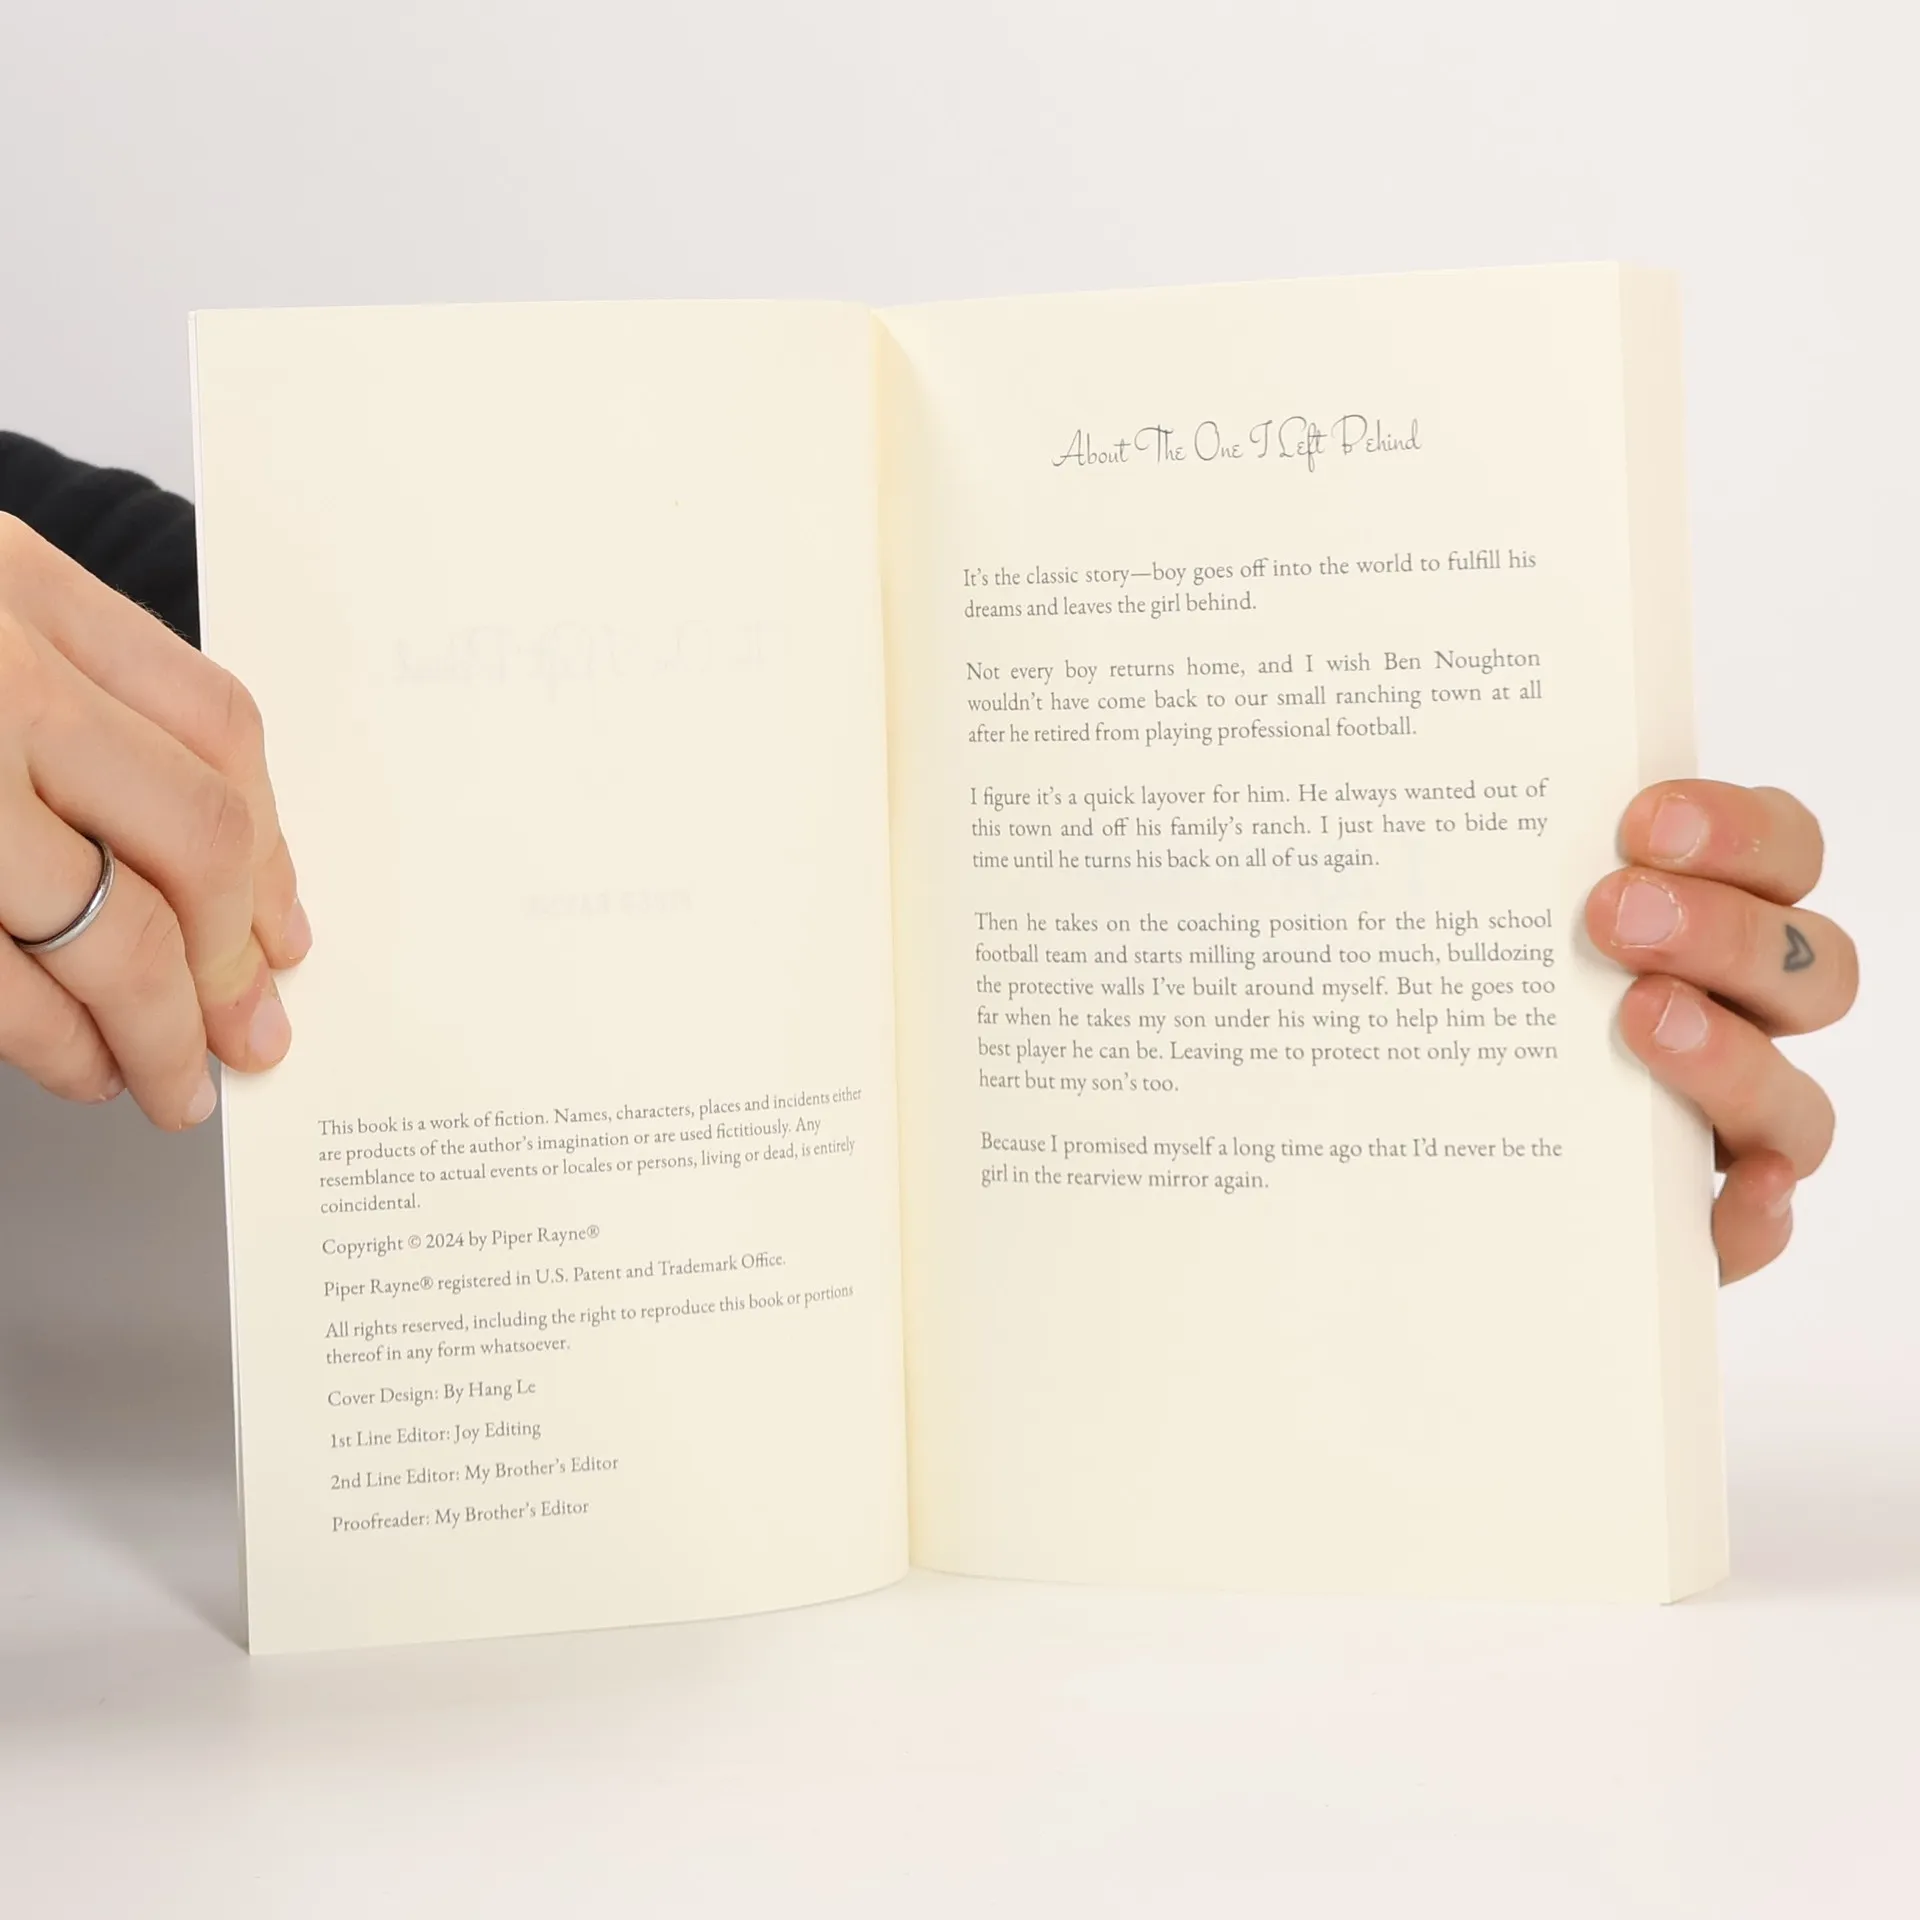 This book is a work of fiction. Names, characters, places and incidents either
are products of the author's imagination or are used fictitiously. Any
resemblance to actual events or locales or persons, living or dead, is entirely
coincidental.
Copyright © 2024 by Piper Rayne®
Piper Rayne® registered in U.S. Patent and Trademark Office.
All rights reserved, including the right to reproduce this book or portions
thereof in any form whatsoever.
Cover Design: By Hang Le
1st Line Editor: Joy Editing
2nd Line Editor: My Brother's Editor
Proofreader: My Brother's Editor
About The One I Left Behind
It's the classic story—boy goes off into the world to fulfill his
dreams and leaves the girl behind.
Not every boy returns home, and I wish Ben Noughton
wouldn't have come back to our small ranching town at all
after he retired from playing professional football.
I figure it's a quick layover for him. He always wanted out of
this town and off his family's ranch. I just have to bide my
time until he turns his back on all of us again.
Then he takes on the coaching position for the high school
football team and starts milling around too much, bulldozing
the protective walls I've built around myself. But he goes too
far when he takes my son under his wing to help him be the
best player he can be. Leaving me to protect not only my own
heart but my son's too.
Because I promised myself a long time ago that I'd never be the
girl in the rearview mirror again.